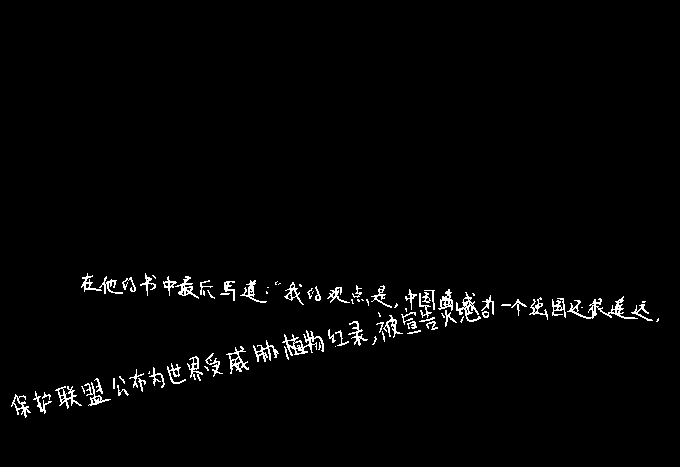 在他的书中最后写道：“我的观点是，中国要成为一个强国还很遥远，
保护联盟公布为世界受威胁植物红录，被宣告灭绝的